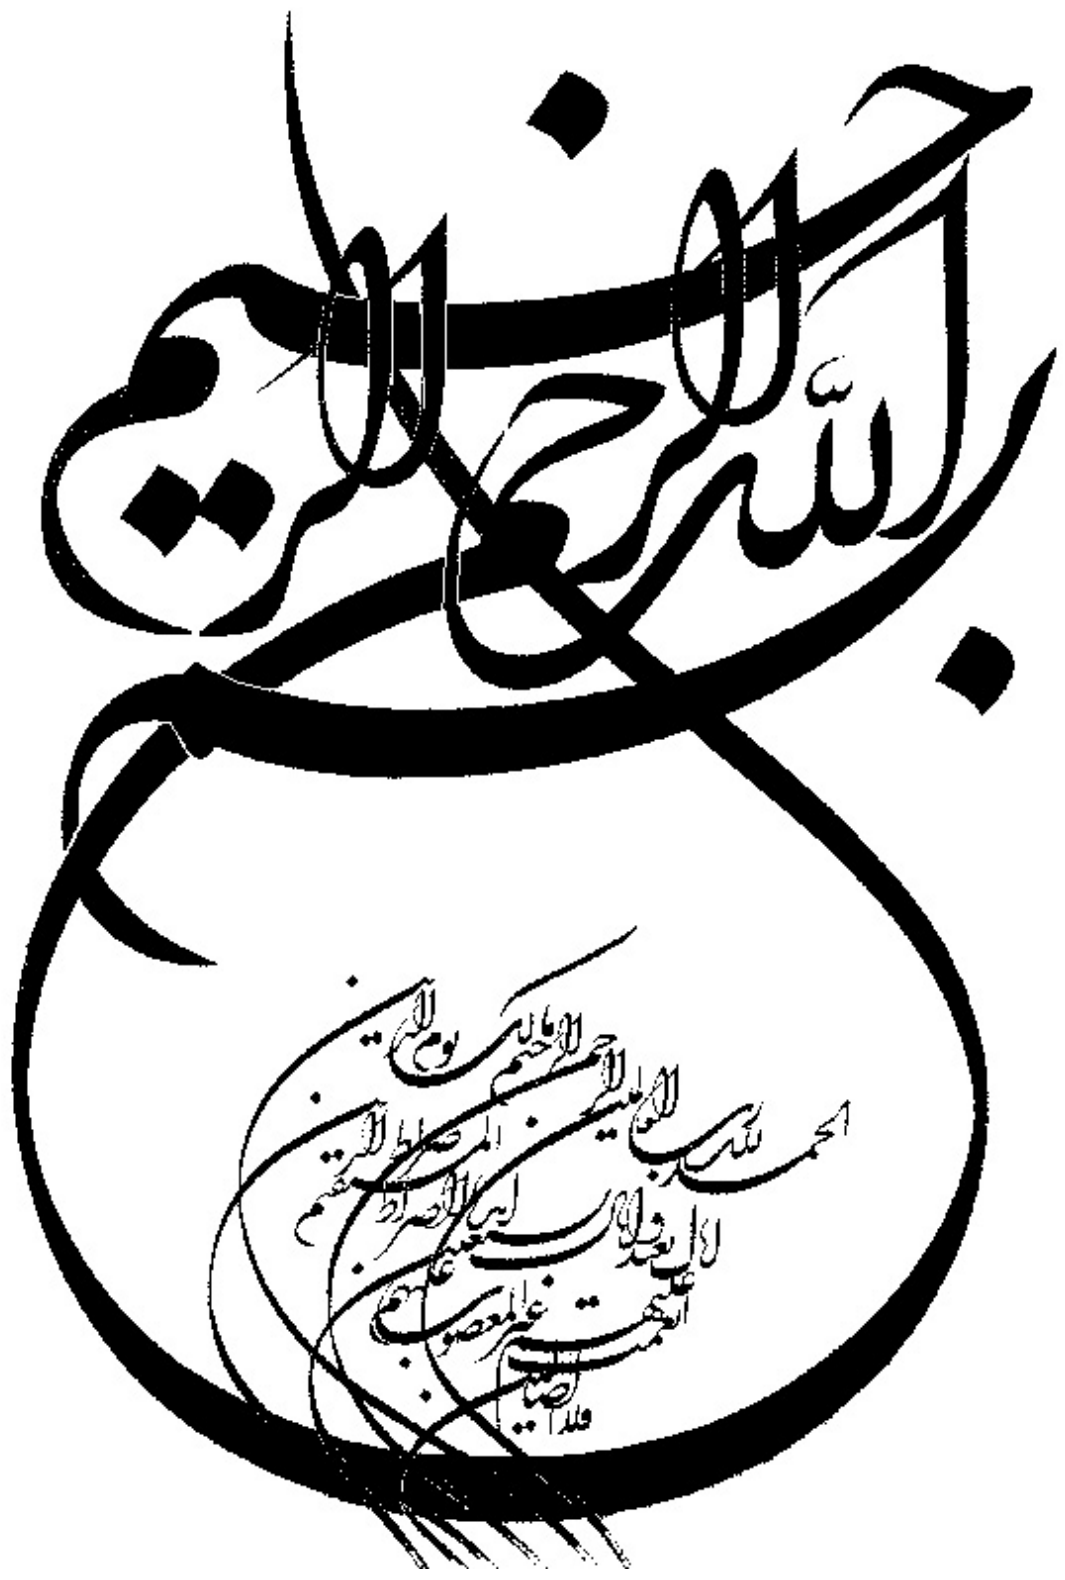 بسم الله الرحمن الرحيم
الحمد لله رب العالمين
الرحمن الرحيم مالك يوم الدين
اهدنا الصراط المستقيم
صراط الذين
عليهم غير المغضوب عليهم
ولا الضالين